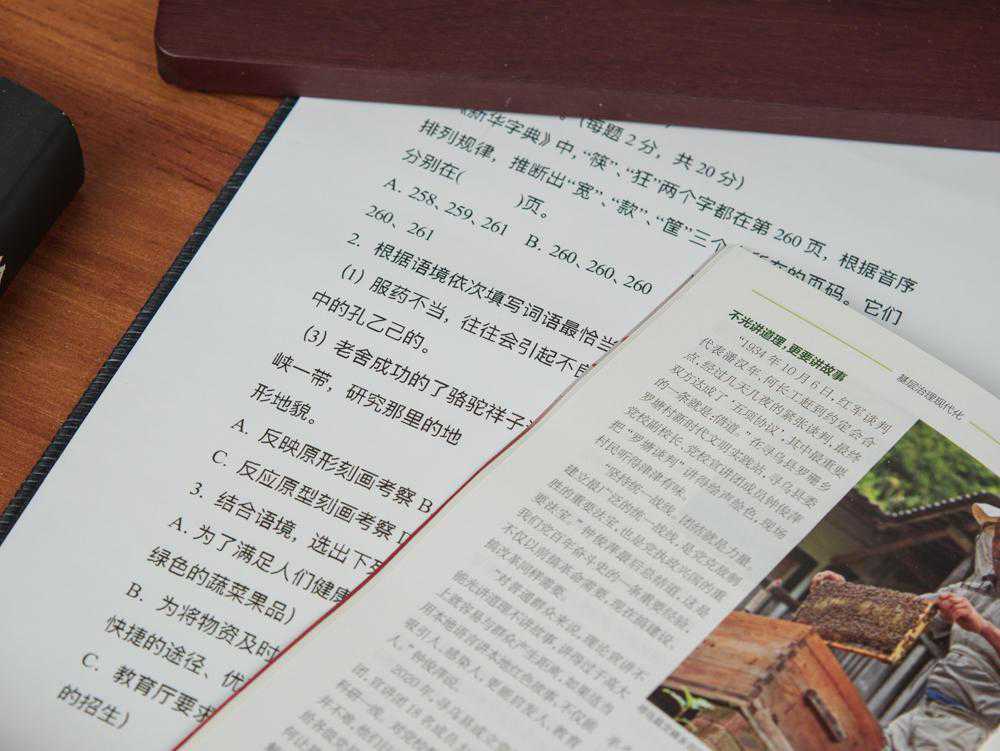 。(每题 2 分，共 20 分)
《新华字典》中，“筷”、“狂”两个字都在第 260 页，根据音序
排列规律，推断出“宽”、“款”、“筐”三个
的页码。它们
分别在( )页。
A. 258、259、261 B. 260、260、260
260、261
2. 根据语境依次填写词语最恰当
(1) 服药不当，往往会引起不良
中的孔乙己的。
(3) 老舍成功的了骆驼祥子
峡一带，研究那里的地
形地貌。
A. 反映原形刻画考察 B
C. 反应原型刻画考察 D
3. 结合语境，选出下列
A. 为了满足人们健康
绿色的蔬菜果品)
B. 为将物资及时
快捷的途径、优
C. 教育厅要求
的招生)
基层治理现代化
不光讲道理，更要讲故事
“1934 年 10 月 6 日，红军谈判
代表潘汉年、何长工赶到约定会合
点，经过几天几夜的紧张谈判，最终
双方达成了‘五项协议’，其中最重要
的一条就是‘借道’。”在寻乌县罗珊乡
罗塘村新时代文明实践站，寻乌县委
党校副校长、党校宣讲团成员钟俊泽
把“罗塘谈判”讲得绘声绘色，现场
村民听得津津有味。
“坚持统一战线，团结就是力量。
建立最广泛的统一战线，是党克敌制
胜的重要法宝，也是党执政兴国的重
要法宝。”钟俊泽最后总结道，这是
我们党百年奋斗史的一条重要经验，
不仅以前搞革命需要，现在搞建设、
搞改革同样需要。
“对普通群众来说，理论宣讲不
能光讲道理不讲故事，讲得过于高大
上就容易与群众产生距离，如果适当
用本地语言讲本地红色故事，不仅能
吸引人、感染人，更能启发人、教育
人。”钟俊泽说。